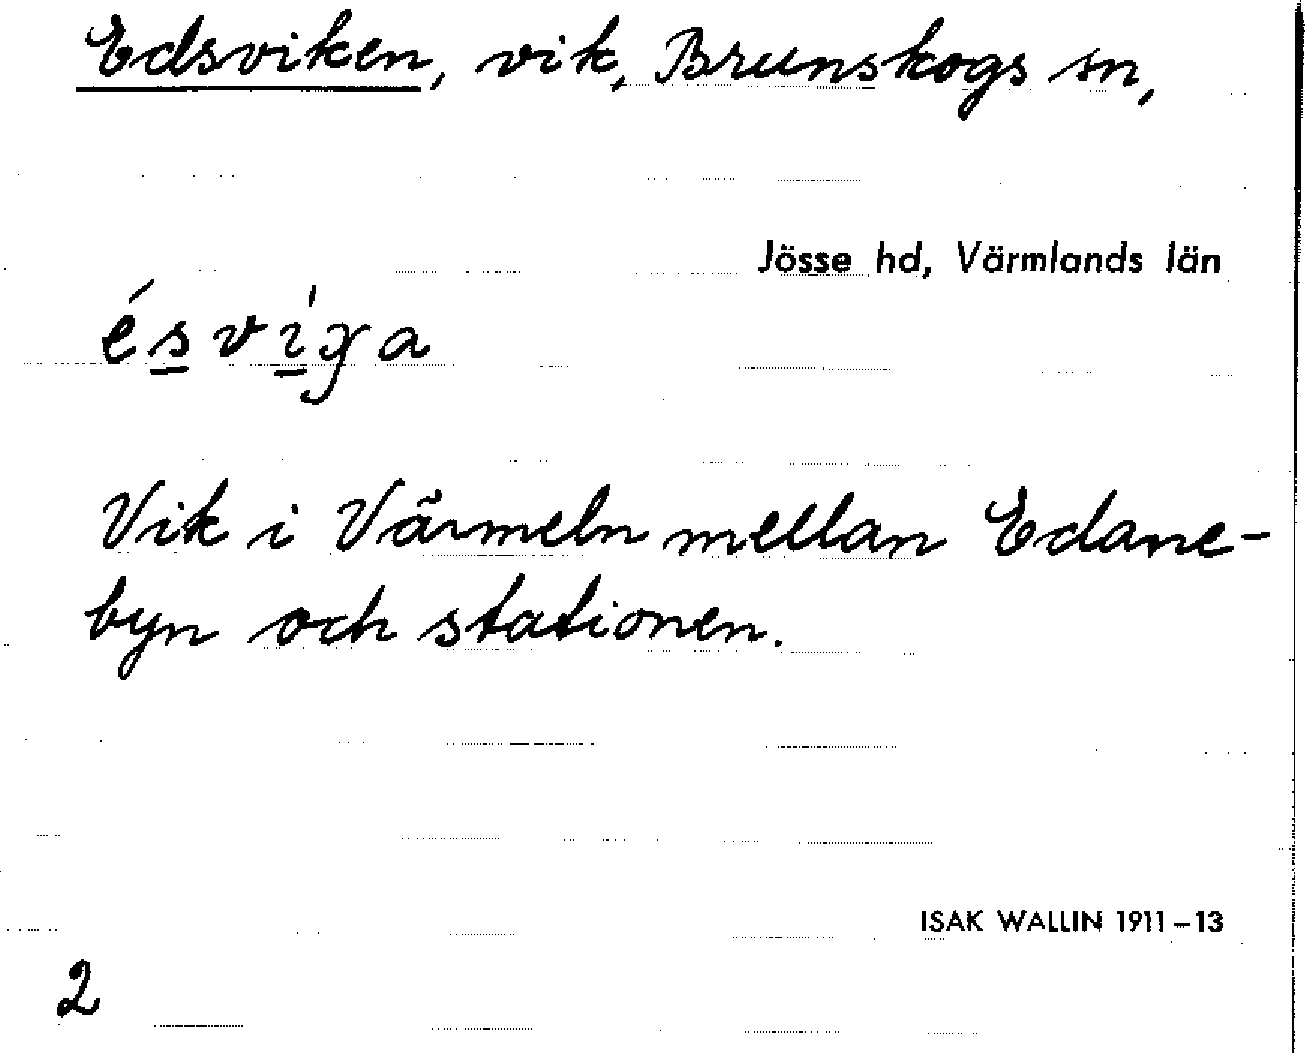 Edsviken, vik, Brunskogs sn,
Jösse hd, Värmlands län
Vik i Värmeln mellan Edane-
byn och stationen.
ISAK WALLIN 1911–13
2